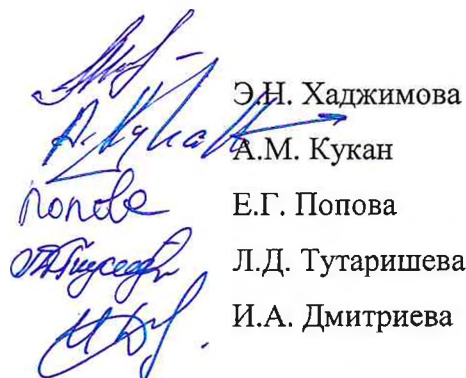 Э.Н. Хаджимова
А. Кукан А.М. Кукан
попова Е.Г. Попова
Л.Д. Тутаришева
И.А. Дмитриева